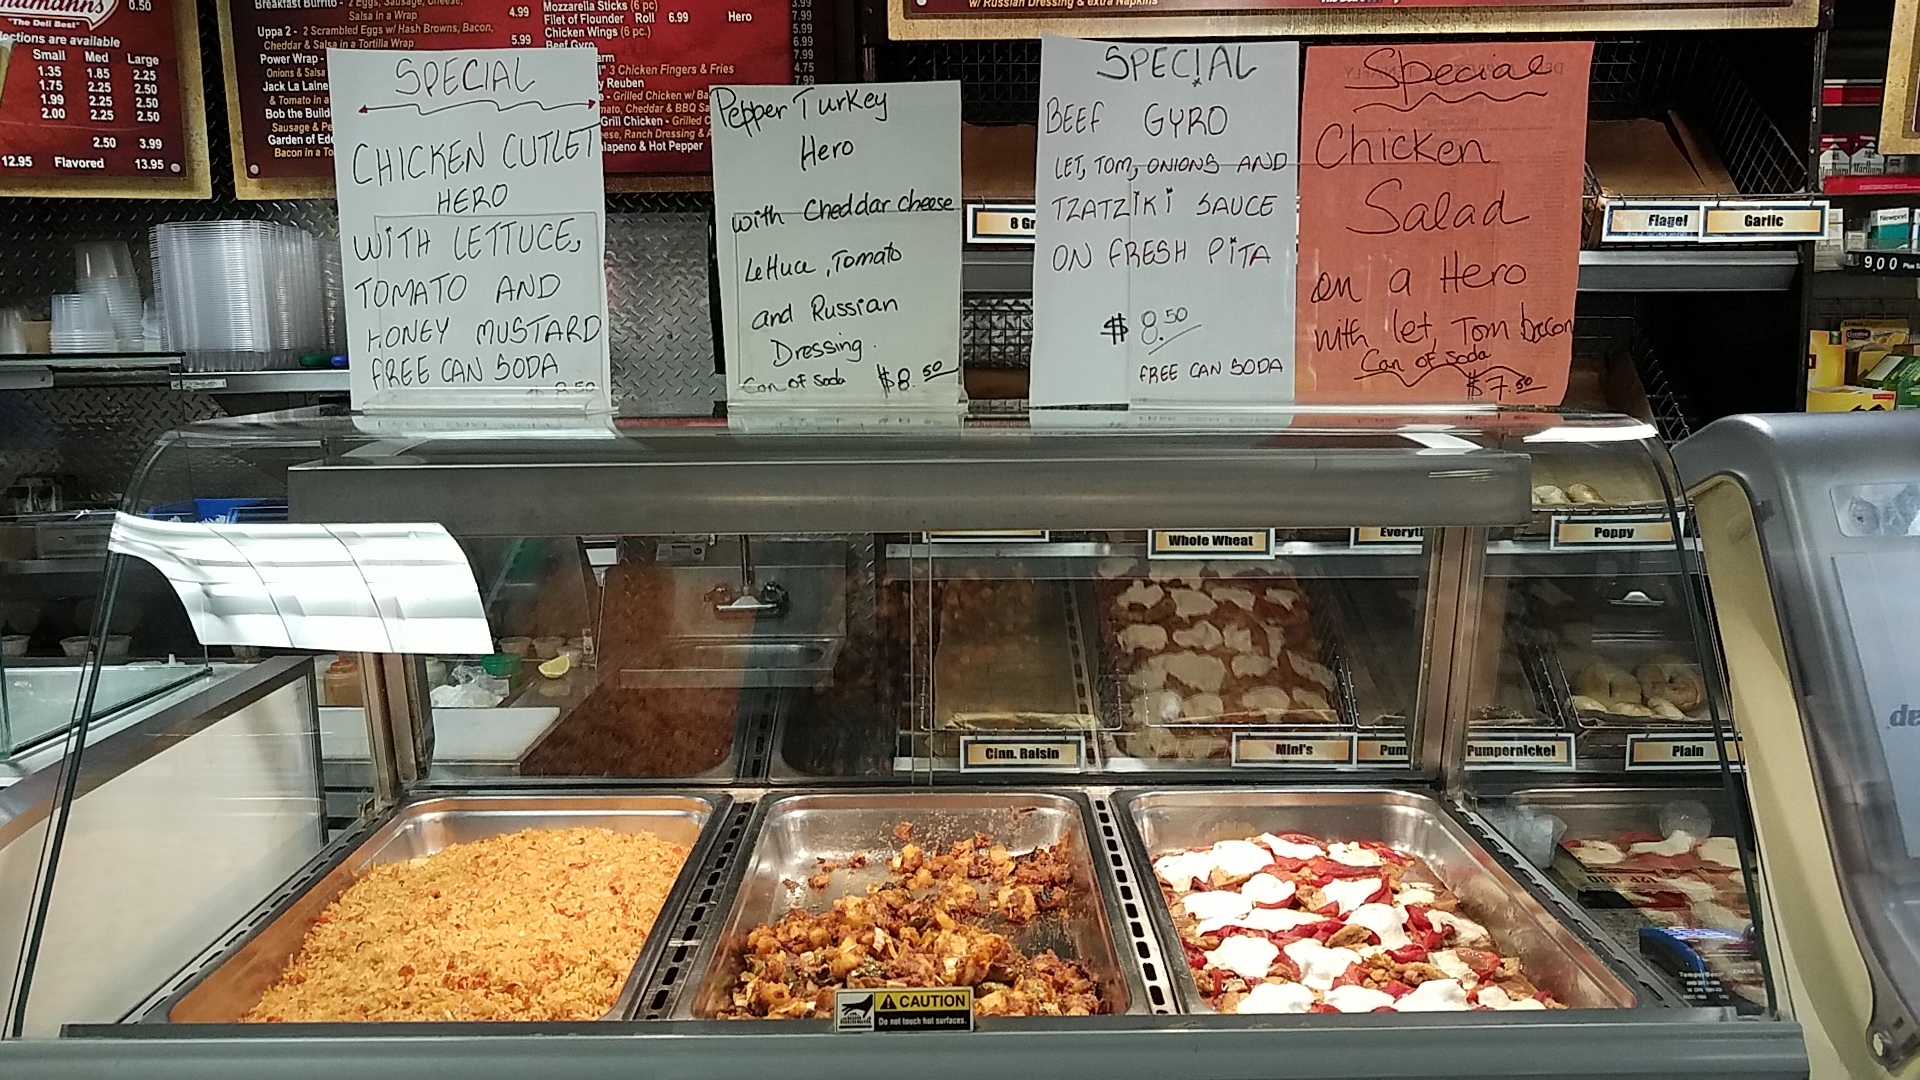 "The Deli Best"
0.50
Small Med Large
1.35 1.85 2.25
1.75 2.25 2.50
1.99 2.25 2.50
2.00 2.25 2.50
2.50 3.99
12.95 Flavored 13.95
Breakfast Burrito - 2 Eggs, Sausage, Cheese,
Salsa in a Wrap 4.99
Uppa 2 - 2 Scrambled Eggs w/ Hash Browns, Bacon,
Cheddar & Salsa in a Tortilla Wrap 5.99
Power Wrap -
Onions & Salsa
Jack La Laine
& Tomato in a
Bob the Build
Sausage & Pe
Garden of Ede
Bacon in a To
Mozzarella Sticks (6 pc)
Filet of Flounder Roll 6.99 Hero
Chicken Wings (6 pc.)
Beef Gyro
3 Chicken Fingers & Fries
Reuben
- Grilled Chicken w/ Ba
Cheddar & BBQ Sa
Grill Chicken - Grilled C
Ranch Dressing &
Jalapeno & Hot Pepper
3.99
5.99
6.99
7.99
4.75
7.99
w/ Russian Dressing & extra Napkins
SPECIAL
CHICKEN CUTLET
HERO
WITH LETTUCE,
TOMATO AND
HONEY MUSTARD
FREE CAN SODA
8.50
Pepper Turkey
Hero
with Cheddar cheese
Lettuce, Tomato
and Russian
Dressing.
Can of Soda $8.50
SPECIAL
BEEF GYRO
LET, TOM, ONIONS AND
TZATZIKI SAUCE
ON FRESH PITA
$8.50
FREE CAN SODA
Special
Chicken
Salad
on a Hero
with let, Tom bacon
Can of Soda
$7.50
8 Gr
Flagel
Garlic
Marlboro
Marlboro
Newport
9.00
Whole Wheat
Everyth
Poppy
Cinn. Raisin
Mini's
Pum
Pumpernickel
Plain
CAUTION
Do not touch hot surfaces.